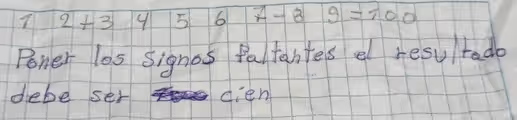 1 2+3 4 5 6 7-8 9=100
Poner los signos faltantes el resultado
debe ser cien